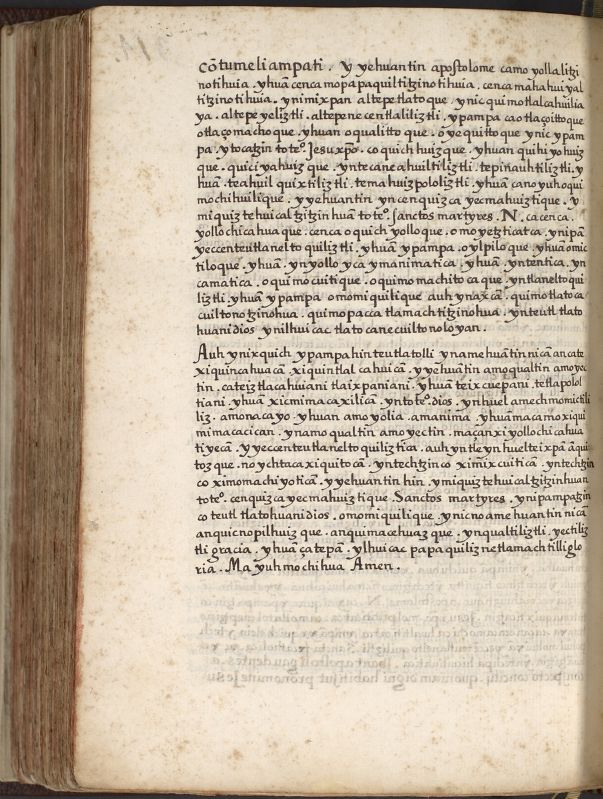 cōtumeliampati. Y yehuantin apostolome camo yollalitzi
notihuia. yhuā cenca mopapaquiltitzinotihuia. cenca mahahuiyal
titzinotihuia. ynimixpan altepetlatoque. ynic quimotlalcahuilia
ya. altepeyeliztli. altepenecentlaliliztli. ypampa ca otlaçoittoque
otlaçomachoque. yhuan oqualittoque. oyequittoque ynic ypam
pa. ytocatzin toteº. Jesu xpō. coquichhuizque. yhuan quihiyohuiz
que. quiciyahuizque. yntecaneahuiltiliztli. tepinauhtiliztli. y
huā. teahuilquixtiliztli. temahuizpololiztli. yhuā canoyuhqui
mochihuilique. yyehuantin yncenquizca yecmahuiztique. y
miquiztehuicaltzitzinhuā toteº. sanctos martyres. N. ca cenca.
yollochicahuaque. cenca oquichyolloque. omoyetzticatca. ynipā
yeccenteutlaneltoquiliztli. yhuā ypampa. oylpiloque. yhuā omic
tiloque. yhuā. ynyollo yca ymanimatica. yhuā. yntentica. yn
camatica. oquimocuitique. oquimomachitocaque. yntlaneltoqui
liztli. yhuā ypampa omomiquilique auh ynaxcā. quimotlatoca
cuiltonotzinohua. quimopaccatlamachtitzinohua. ynteutl tlato
huani dios ynilhuicac tlatocanecuiltonoloyan.
Auh ynixquich ypampahin teutlatolli ynamehuātin nicā ancate
xiquincahuacā. xiquintlalcahuicā. yyehuātin amoqualtin amoyec
tin. cateiztlacahuiani tlaixpaniani. yhuā teixcuepani. tetlapolol
tiani. yhuā xicmimacaxilicā. ynteº. dios. ynhuelamechmomictili
liz. amonacayo. yhuan amoyolia. amanima. yhuā macamo xiqui
mimacacican. ynamoqualtin amoyectin. maçan xiyollochicahua
tiyecā. yyeccenteutlaneltoquiliztica. auh yntleynhuelteixpā āqui
tozque. noychtaca xiquitocā. yntechtzinco ximixcuiticā. yntechtzin
co ximomachiyoticā. yyehuantin hin. ymiquiztehuicaltzitzinhuan
toteº. cenquizca yecmahuiztique. Sanctos martyres. ynipampatzin
co teutl tlatohuani dios. omomiquilique. ynicno amehuantin nicā
anquicnopilhuiz que. anquimacehuazque. ynqualtiliztli. yectiliz
tli gracia. yhuā çatepā. ylhuicac papaquiliznetlamachtilli glo
ria. Ma yuh mochihua Amen.